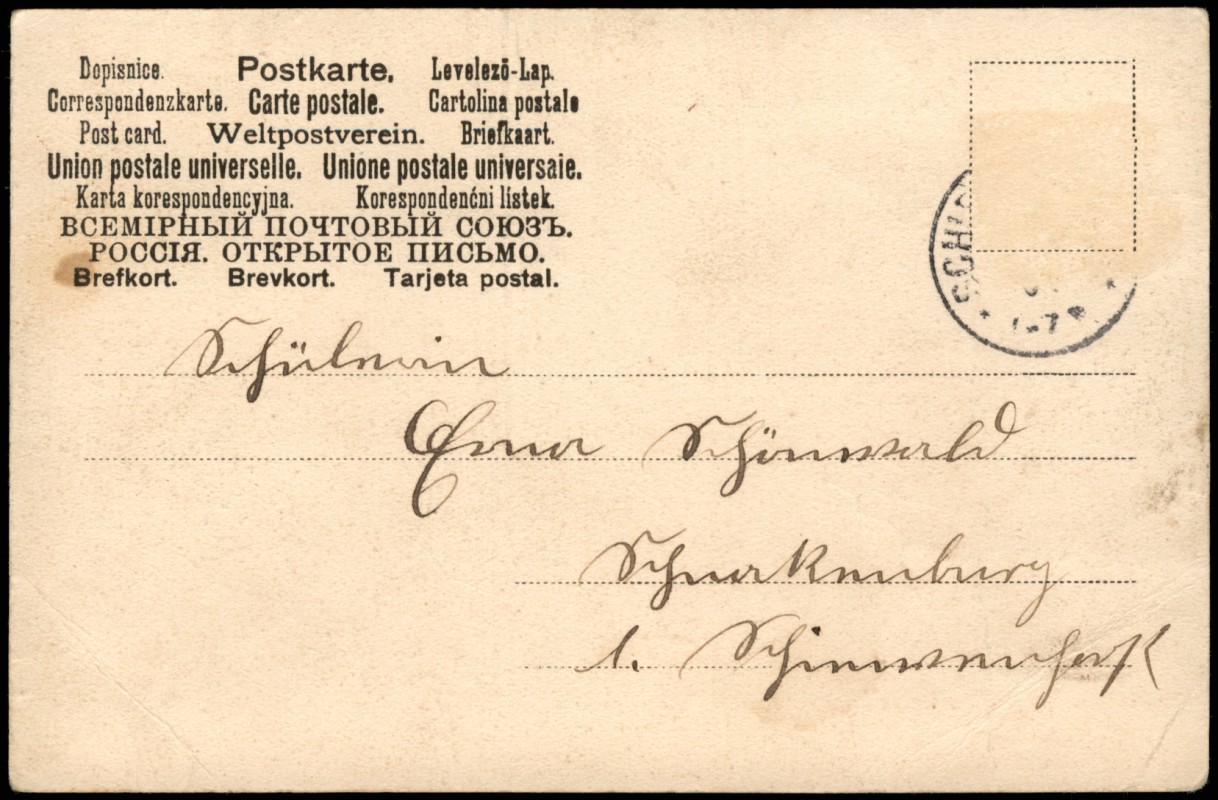 Dopisnice. Postkarte. Levelező-Lap.
Correspondenzkarte. Carte postale. Cartolina postale
Post card. Weltpostverein. Briefkaart.
Union postale universelle. Unione postale universaie.
Karta korespondencyjna. Korespondenćni lístek.
ВСЕМІРНЫЙ ПОЧТОВЫЙ СОЮЗЪ.
РОССІЯ. ОТКРЫТОЕ ПИСЬМО.
Brefkort. Brevkort. Tarjeta postal.
SCHI
Schülerin
Erna Schönwald
Schnakenburg
b. Schiewenhorst